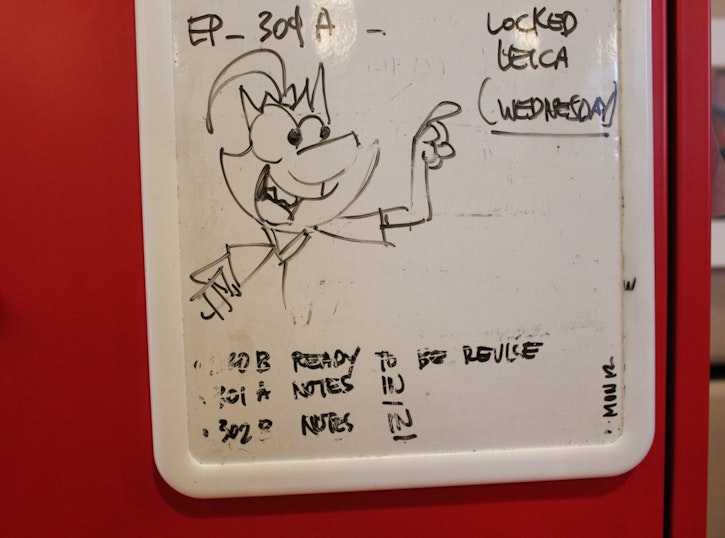 EP_ 304 A -
LOCKED
LEICA
(WEDNESDAY)
30 B READY TO BE REVISE
301 A NOTES 12/21
302 B NOTES